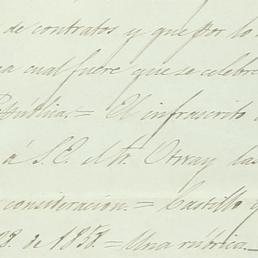 de contratos y que por lo
cual fuere que se celebre
República. = El infrascrito
á S. E. el Sr. Otway las
consideracion. = Castillo y
28. de 1858. = Una rúbrica. =